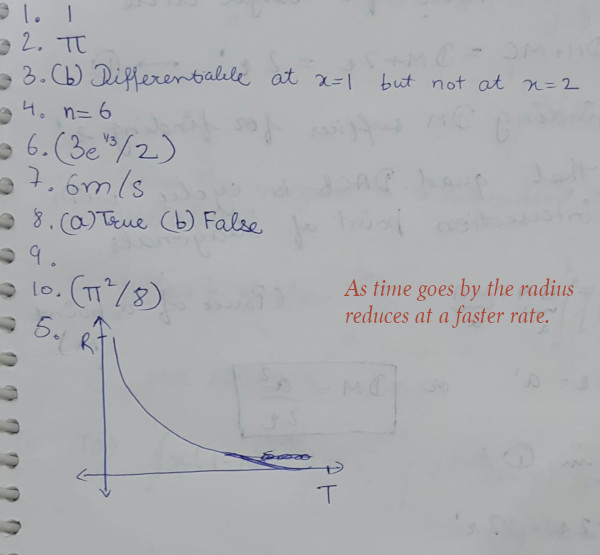 1. 1
2. π
3. (b) Differentiable at x=1 but not at x=2
4. n=6
6. (3e^1/3/2)
7. 6m/s
8. (a) True (b) False
9.
10. (π²/8)
As time goes by the radius
reduces at a faster rate.
5.
R
T